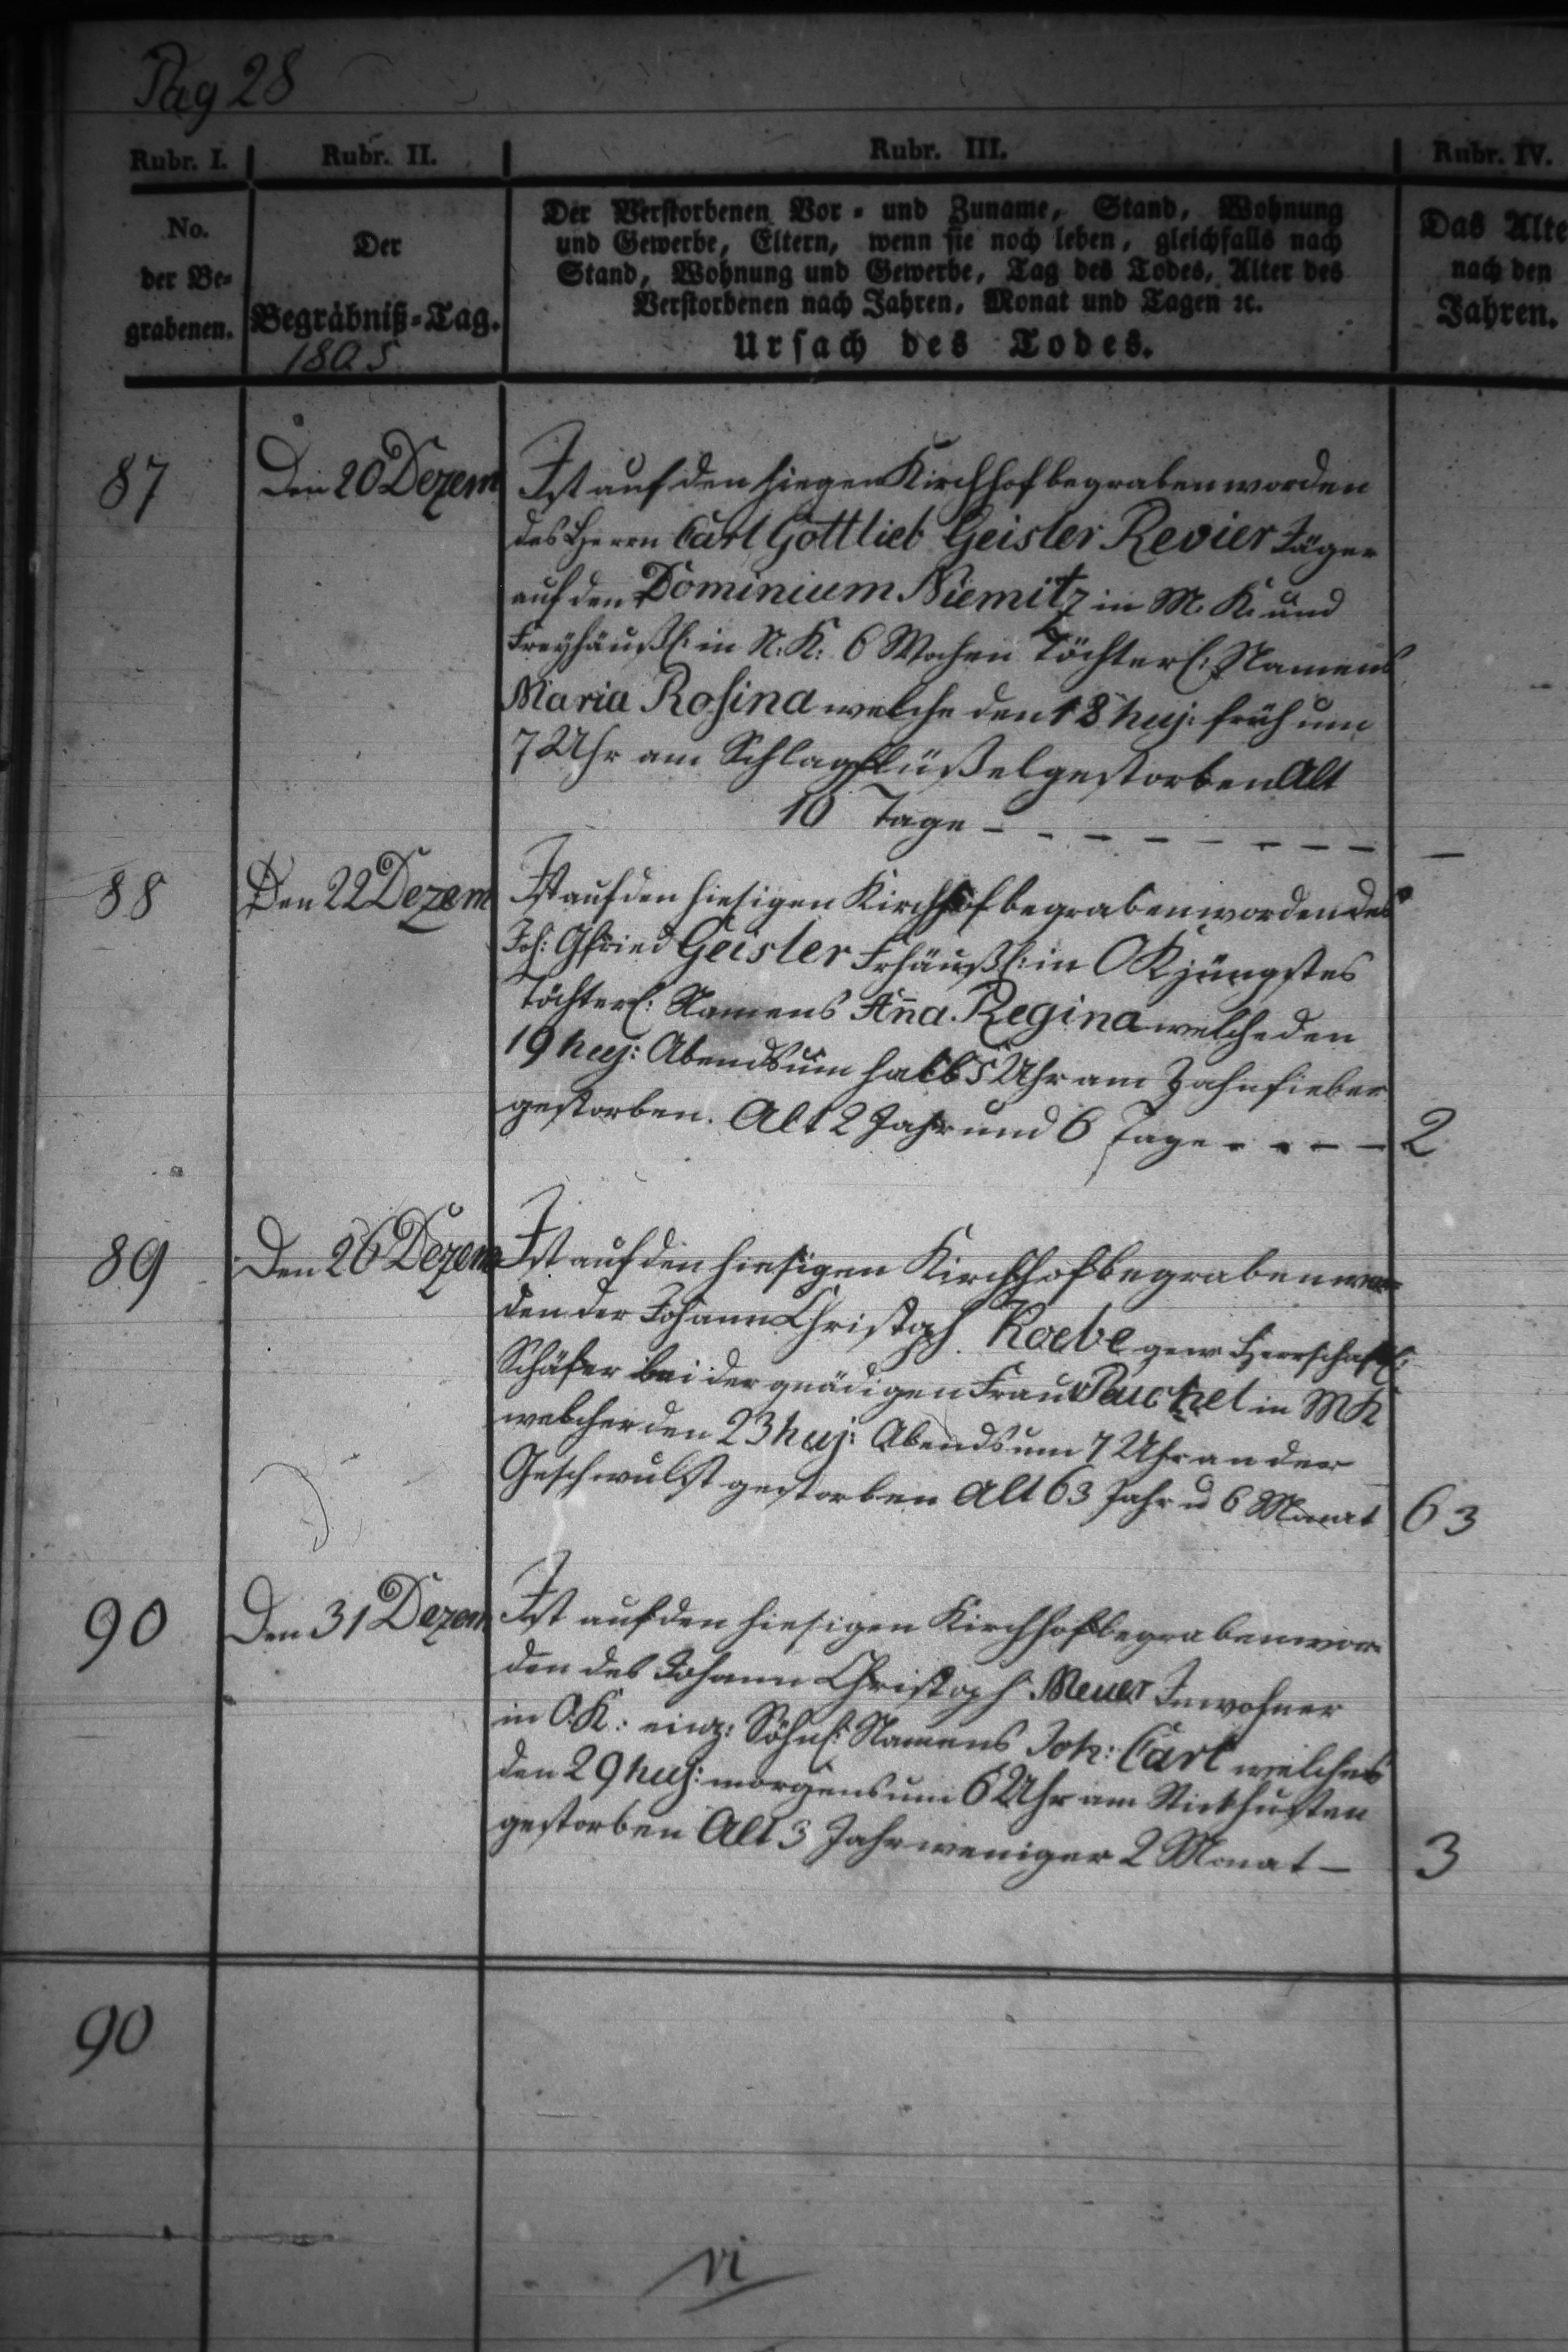 Pag 28
Rubr. I. Rubr. II. Rubr. III. Rubr. IV.
No.
der Be-
grabenen.
Der
Begräbniß-Tag.
1805
Der Verstorbenen Vor- und Zuname, Stand, Wohnung
und Gewerbe, Eltern, wenn sie noch leben, gleichfalls nach
Stand, Wohnung und Gewerbe, Tag des Todes, Alter des
Verstorbenen nach Jahren, Monat und Tagen ꝛc.
Ursach des Todes.
Das Alte
nach den
Jahren.
87 Den 20 Dezem Ist auf den hiegen Kirchhof begraben worden
des Herrn Carl Gottlieb Geisler Revier Jäger
auf den Dominium Niemitz in M. K. und
Freyhäußl: in N: K: 6 Wochen Töchterl: Namens
Maria Rosina welche den 18 huj: früh um
7 Uhr am Schlagflüßel gestorben Alt
10 Tage — — — — — — — —
88 Den 22 Dezem Ist auf den hiesigen Kirchhof begraben worden des
Joh: Gfried Geisler Frhäußl: in O K jüngstes
Töchterl: Namens An̄a. Regina welche den
19 huj: Abends um halb 5 Uhr am Zahnfieber
gestorben. Alt 2 Jahr und 6 Tage - - - - 2
89 Den 26 Dezem Ist auf den hiesigen Kirchhof begraben wor-
den der Johann Christoph Koebe gew. Herrschaftl:
Schäfer bei der gnädigen Frau Peuckel in M K
welcher den 23 huj: Abends um 7 Uhr an der
Geschwulst gestorben Alt 63 Jahr u 6 Monat 63
90 Den 31 Dezem Ist auf den hiesigen Kirchhof begraben wor-
den des Johann Christoph Meuer Inwohner
in O. K.: einz: Söhnl: Namens Joh: Carl welches
den 29 huj: morgens um 6 Uhr am Stickhusten
gestorben Alt 3 Jahr weniger 2 Monat — 3
90